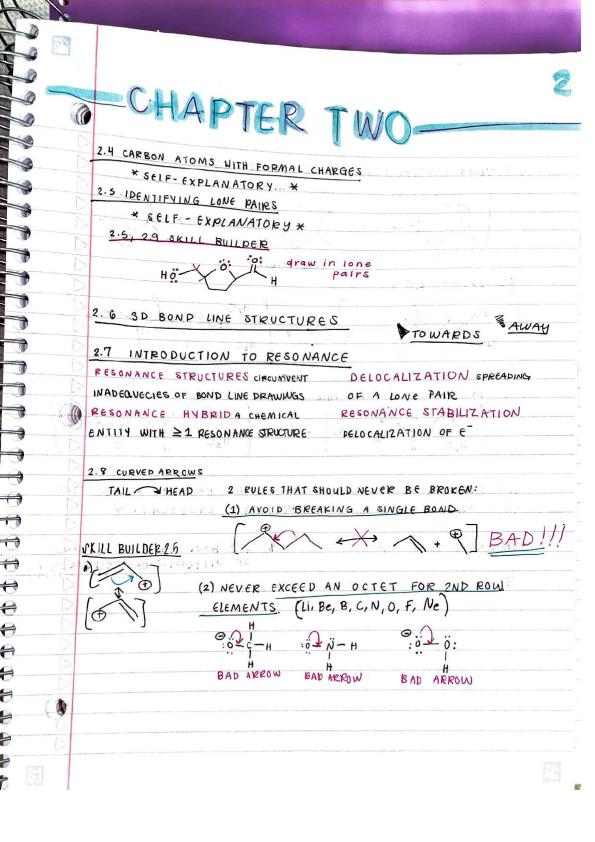 2
CHAPTER TWO
2.4 CARBON ATOMS WITH FORMAL CHARGES
* SELF-EXPLANATORY... *
2.5 IDENTIFYING LONE PAIRS
* SELF-EXPLANATORY *
2.5, 2.9 SKILL BUILDER
HO O O H
draw in lone
pairs
2.6 3D BOND LINE STRUCTURES
TOWARDS AWAY
2.7 INTRODUCTION TO RESONANCE
RESONANCE STRUCTURES CIRCUMVENT
INADEQUECIES OF BOND LINE DRAWINGS
RESONANCE HYBRID A CHEMICAL
ENTITY WITH ≥1 RESONANCE STRUCTURE
DELOCALIZATION SPREADING
OF A LONE PAIR
RESONANCE STABILIZATION
DELOCALIZATION OF e⁻
2.8 CURVED ARROWS
TAIL HEAD
2 RULES THAT SHOULD NEVER BE BROKEN:
(1) AVOID BREAKING A SINGLE BOND
[ ⊕ ↔ + ⊕ ] BAD!!!
SKILL BUILDER 2.5
(2) NEVER EXCEED AN OCTET FOR 2ND ROW
ELEMENTS. (Li, Be, B, C, N, O, F, Ne)
H
⊖ O C H
H
BAD ARROW
O N H
H
BAD ARROW
⊖ O O
H
BAD ARROW